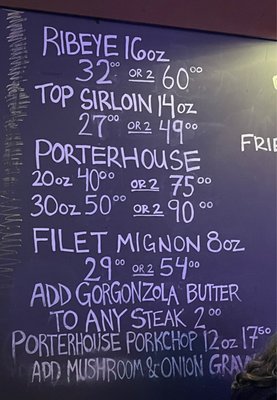 RIBEYE 16oz
32⁰⁰ OR 2 60⁰⁰
TOP SIRLOIN 14oz
27⁰⁰ OR 2 49⁰⁰
FRIE
PORTERHOUSE
20oz 40⁰⁰ OR 2 75⁰⁰
30oz 50⁰⁰ OR 2 90⁰⁰
FILET MIGNON 8oz
29⁰⁰ OR 2 54⁰⁰
ADD GORGONZOLA BUTTER
TO ANY STEAK 2⁰⁰
PORTERHOUSE PORKCHOP 12oz 17⁵⁰
ADD MUSHROOM & ONION GRAV